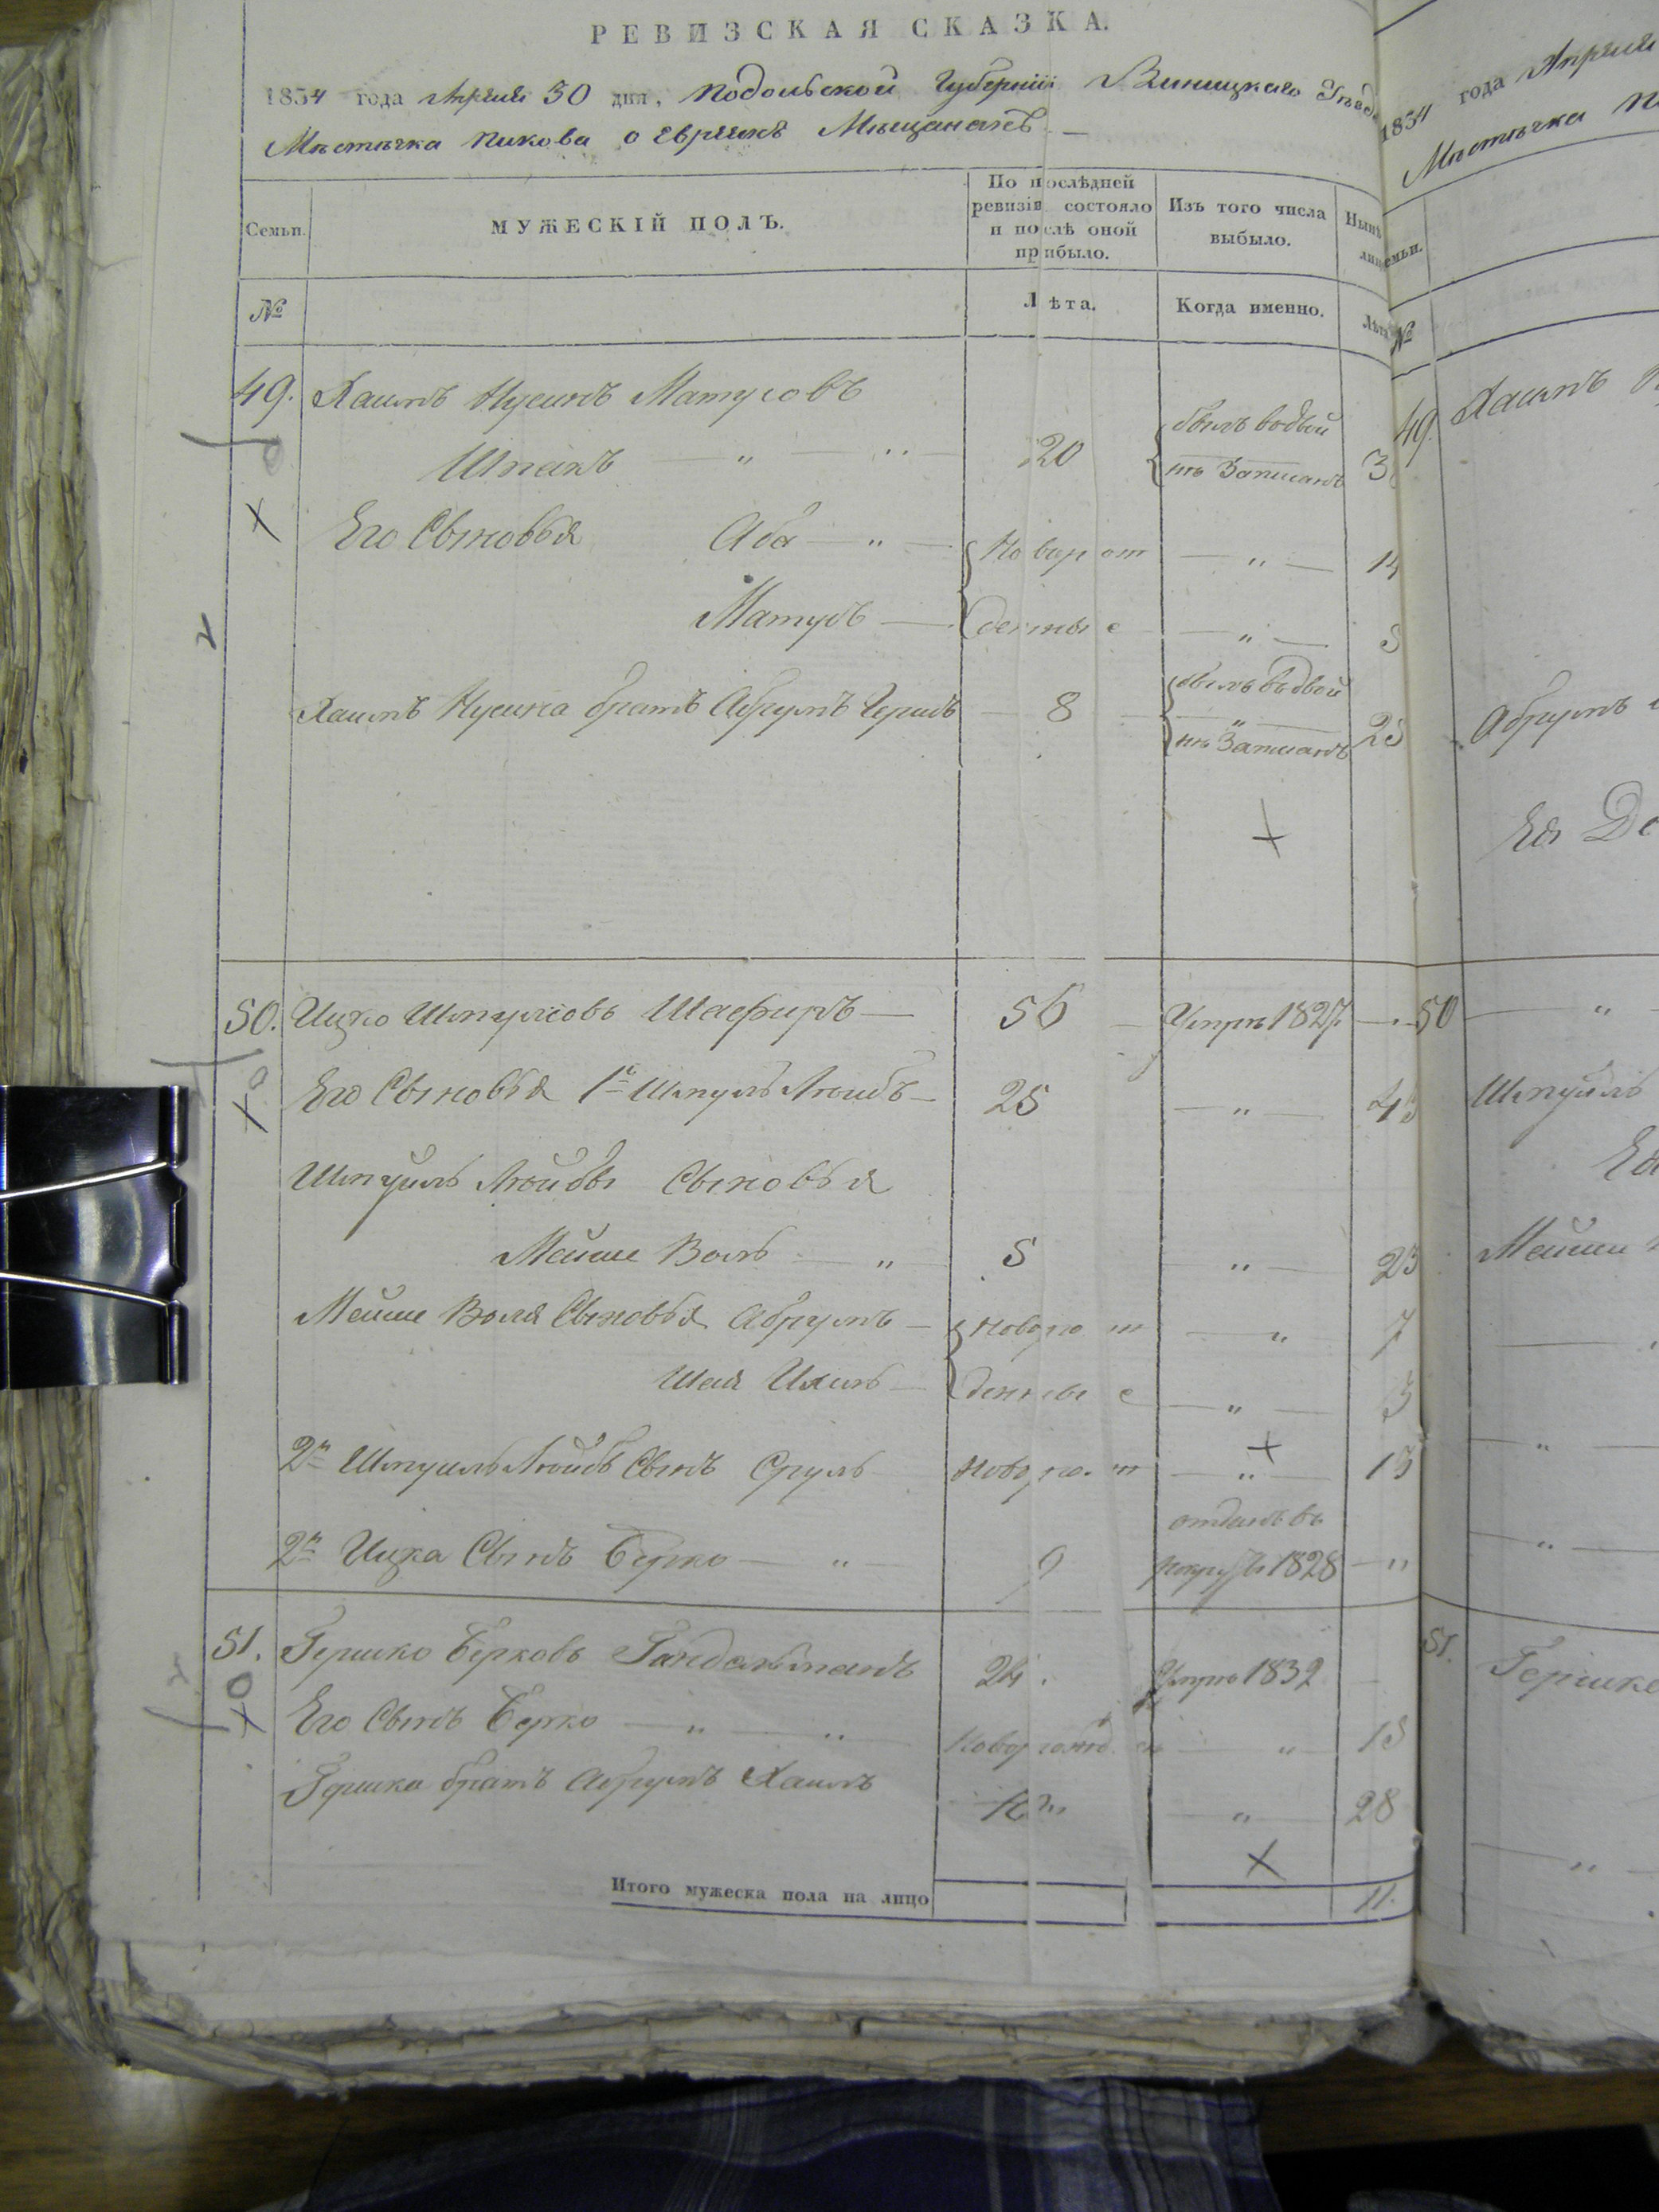 РЕВИЗСКАЯ СКАЗКА.
1834 года Апреля 30 дня, Подольской Губерніи Виницкаго Уезд.
Мѣстѣчка Пикова о Евреяхъ Мѣщанахъ
Семьи.
МУЖЕСКІЙ ПОЛЪ.
По послѣдней ревизіи состояло и послѣ оной прибыло.
Изъ того числа выбыло.
Нынѣ
№
Лѣта.
Когда именно.
Лѣта
49. Хаимъ Нусинъ Матусовъ
былъ вобвой
Шпакъ — „ — „ 20
нѣ Записанъ 3
Его Сыновья Аба — „ — Новорот — „ — 14
Матусъ — денные — „ — 8
былъ вобвой
Хаимъ Нусина братъ Абрумъ Гершъ — 8 — „ —
нѣ Записанъ 25
50. Ицко Шмулiовъ Шафиръ — 56 — Умеръ 1827. —
Его Сыновья 1й Шмуль Лейбъ — 25 — „ — 43
Шмуйль Лейбы Сыновья
Мейше Воль — „ 5 — „ — 23
Мейше Воля Сыновья Абрумъ — новорот — „ — 7
Шая Ихиль — денные — „ — 3
2й Шмуиль Лейбъ Сынъ Сруль Новорот — „ — 13
отданъ въ
2й Ицка Сынъ Берко — „ — 9 рекруты 1828 — „
51. Гершко Берковъ Гандельманъ 24. Умеръ 1832 —
Его Сынъ Берко — „ — „ Новорожд. ен — „ — 15
Гершка братъ Абрумъ Хаимъ — „ — 28
Итого мужеска пола на лицо 11.
1834 года Апреля
Мѣстѣчка
Семьи.
№
49. Хаимъ
Абрумъ
Ея
50 — „
Шмуйль
Мейши
51. Гершка